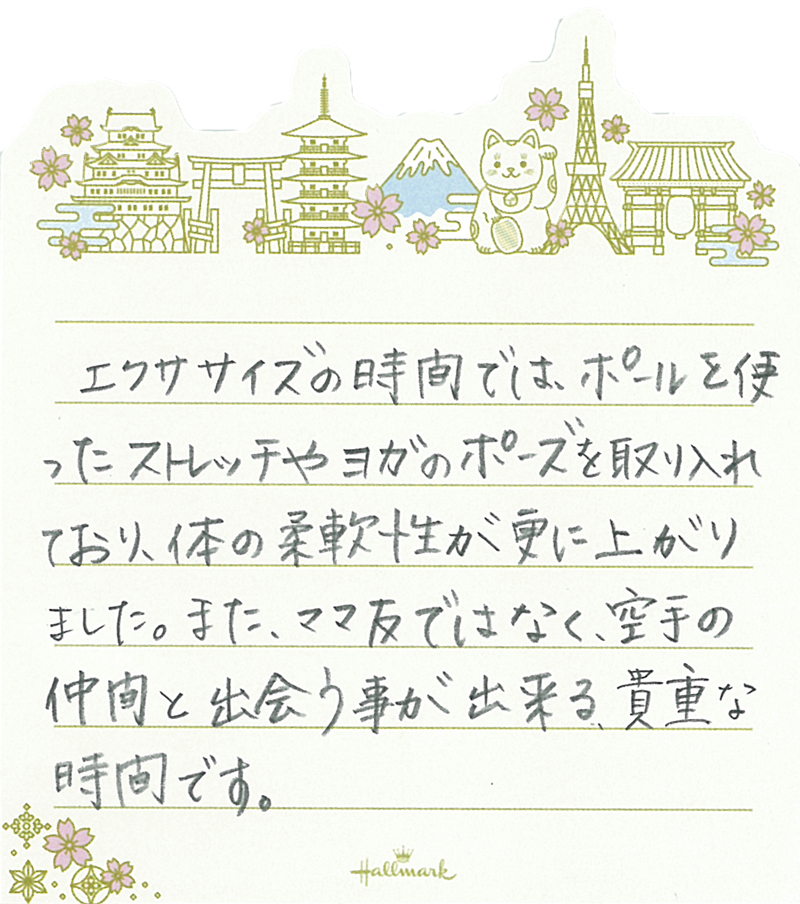 エクササイズの時間では、ポールを使
ったストレッチやヨガのポーズを取り入れ
ており、体の柔軟性が更に上がり
ました。また、ママ友ではなく、空手の
仲間と出会う事が出来る、貴重な
時間です。
Hallmark